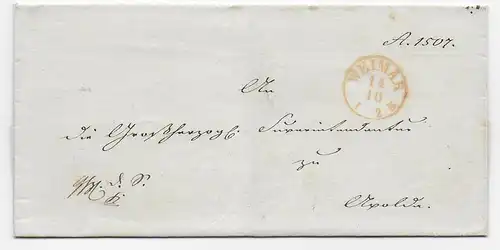 A. 1507.
WEIMAR
14
10
An
die Großherzogl. Superintendentur
zu
d. S.
Apolda.